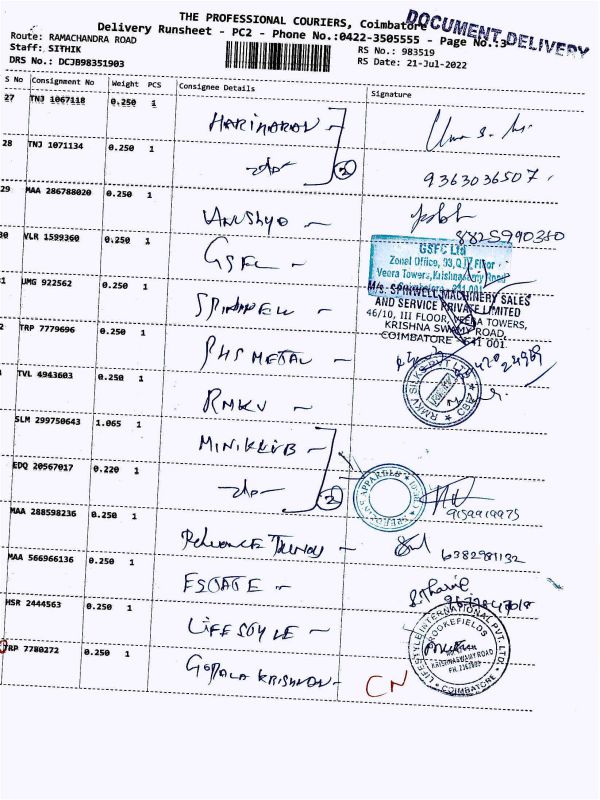 THE PROFESSIONAL COURIERS, Coimbatore
DOCUMENT DELIVERY
Delivery Runsheet - PC2 - Phone No.:0422-3505555 - Page No.:3
Route: RAMACHANDRA ROAD
Staff: SITHIK
RS No.: 983519
DRS No.: DCJB98351903
RS Date: 21-Jul-2022
S No Consignment No Weight PCS Consignee Details Signature
27 TNJ 1067118 0.250 1 HARIHARAN
28 TNJ 1071134 0.250 1 2 9363036507
29 MAA 286788020 0.250 1 8825990380
30 VLR 1599360 0.250 1 GSFC
GSFC Ltd
Zonal Office, 93, Floor
Veera Towers, Krishnasamy Road
1 UMG 922562 0.250 1
M/s. SPINWELL MACHINERY SALES
AND SERVICE PRIVATE LIMITED
46/10, III FLOOR, VEERA TOWERS,
KRISHNA SWAMY ROAD,
COIMBATORE - 641 001.
2 TRP 7779696 0.250 1 PHS METAL
TVL 4943603 0.250 1 RMKV
RMKV SILKS PVT LTD
CBE
SLM 299750643 1.065 1 MINIKLUB
EDQ 20567017 0.220 1 2 9159919975
MAA 288598236 0.250 1 RELIANCE TRENDS 6382981132
MAA 566966136 0.250 1 ESTATE
HSR 2444563 0.250 1 LIFESTYLE
LIFESTYLE INTERNATIONAL PVT. LTD.
BROOKEFIELDS
KRISHNASWAMY ROAD
COIMBATORE
TRP 7780272 0.250 1 GOPALA KRISHNAN CN